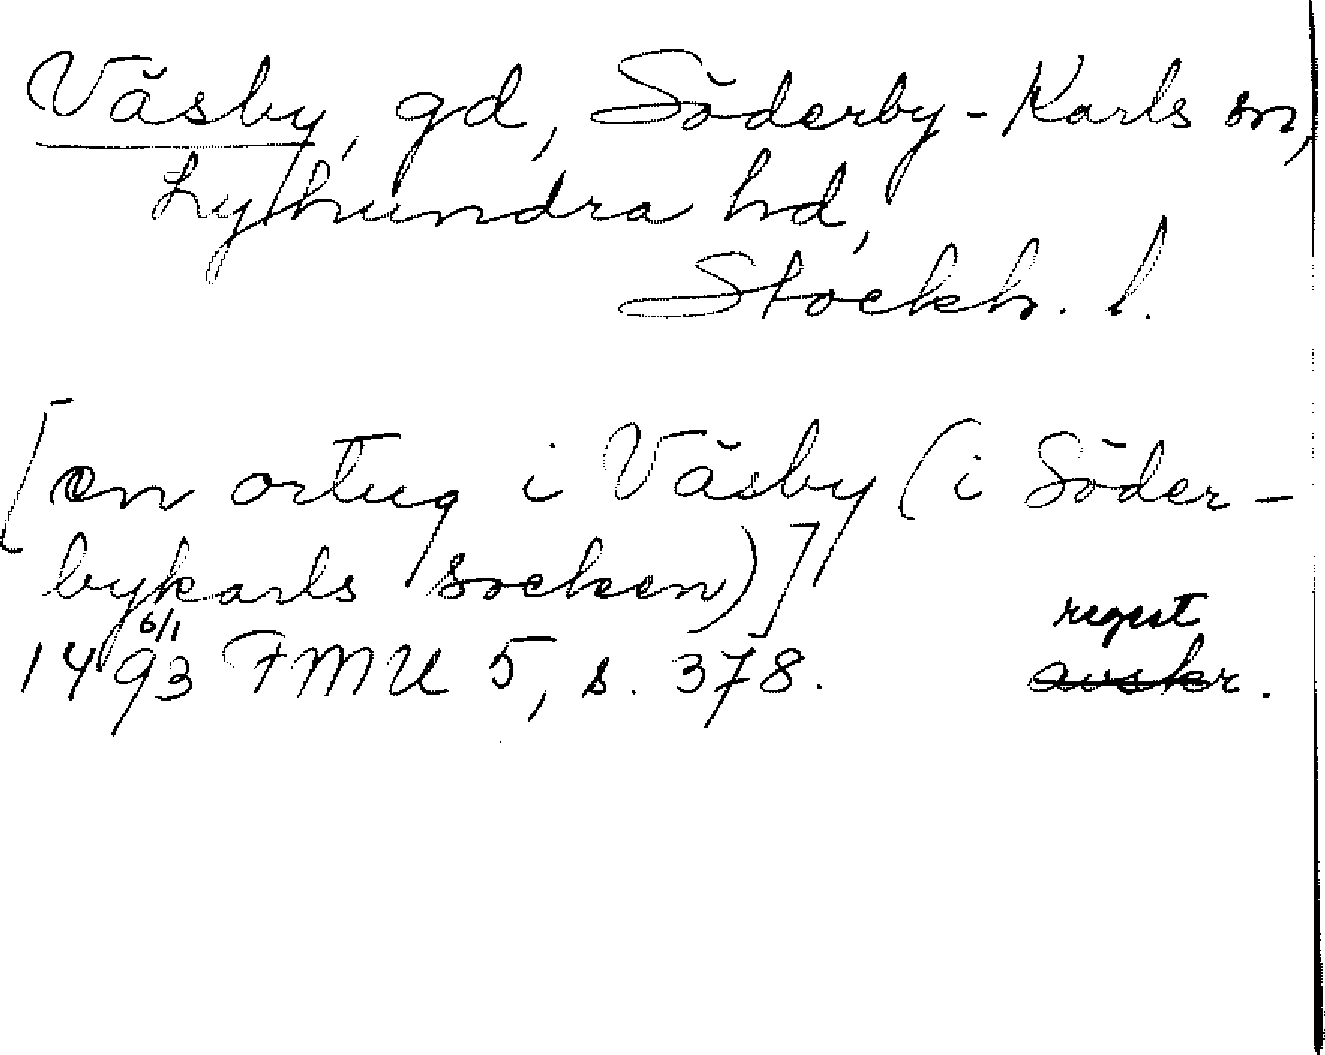 Väsby, gd, Söderby-Karls sn,
Lyhundra hd,
Stockh. l.
[en örtug i Väsby (i Söder-
bykarls socken)]
6/1 regest
1493 FMU 5, s. 378. avskr.